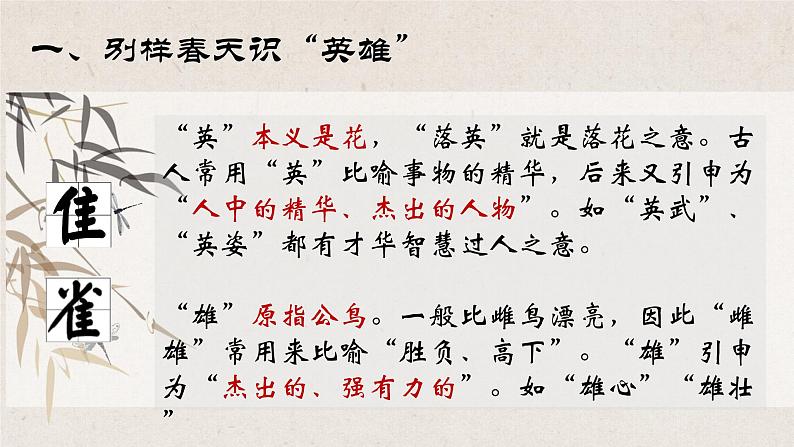 一、别样春天识“英雄”
“英”本义是花，“落英”就是落花之意。古
人常用“英”比喻事物的精华，后来又引申为
“人中的精华、杰出的人物”。如“英武”、
“英姿”都有才华智慧过人之意。
隹
雀
“雄”原指公鸟。一般比雌鸟漂亮，因此“雌
雄”常用来比喻“胜负、高下”。“雄”引申
为“杰出的、强有力的”。如“雄心”“雄壮
”